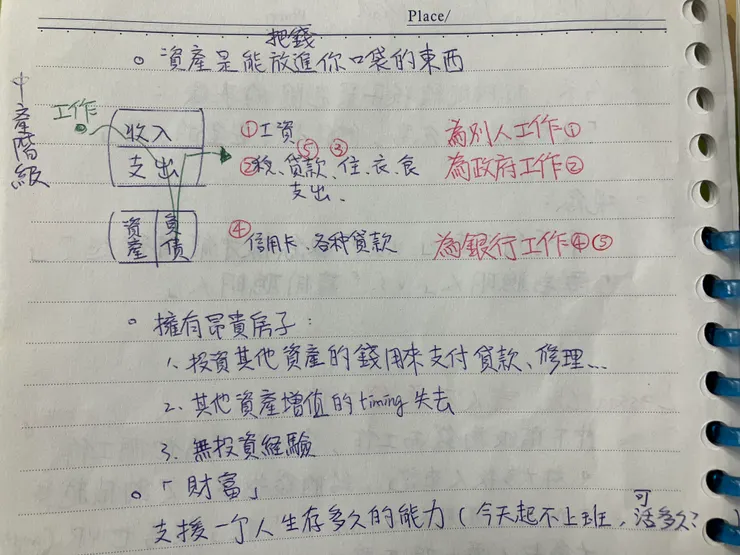 Place/
把錢
。資產是能放進你口袋的東西
中產階級
工作
收入 ①工資 為別人工作①
⑤ ③
支出 ②稅、貸款、住、衣、食 為政府工作②
支出、
④
資產 負債 信用卡、各种貸款 為銀行工作④⑤
。擁有昂貴房子：
1. 投資其他資產的錢用來支付貸款、修理...
2. 其他資產增值的timing失去
3. 無投資經驗
。「財富」
可
支援一个人生存多久的能力(今天起不上班，活多久?)